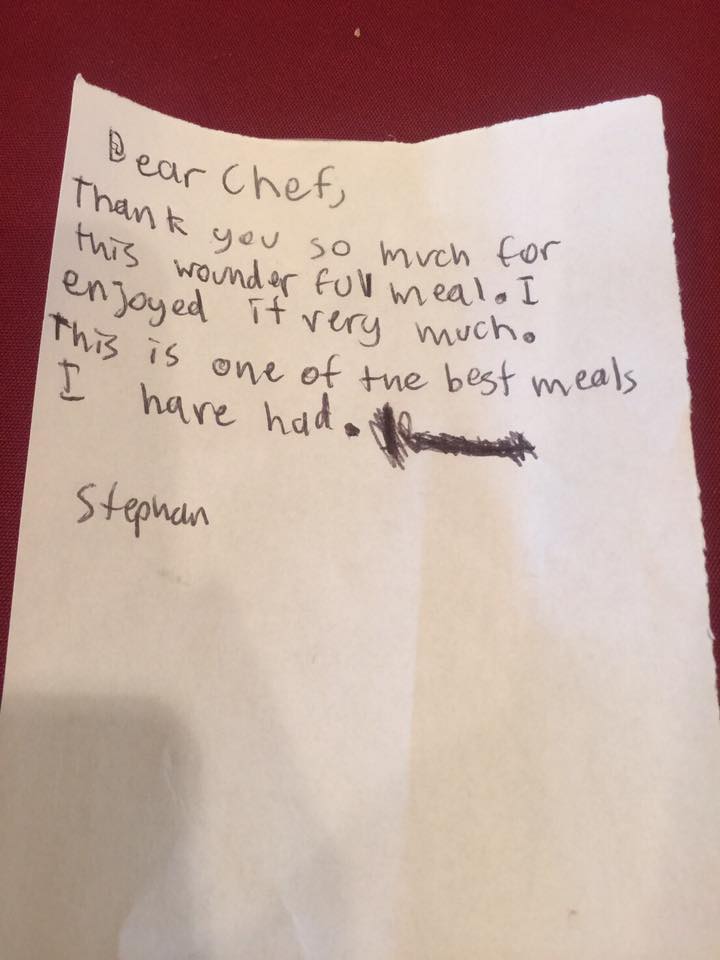 Dear Chef,
Thank you so much for
this wounder full meal. I
enjoyed it very much.
This is one of the best meals
I have had.
Stephan